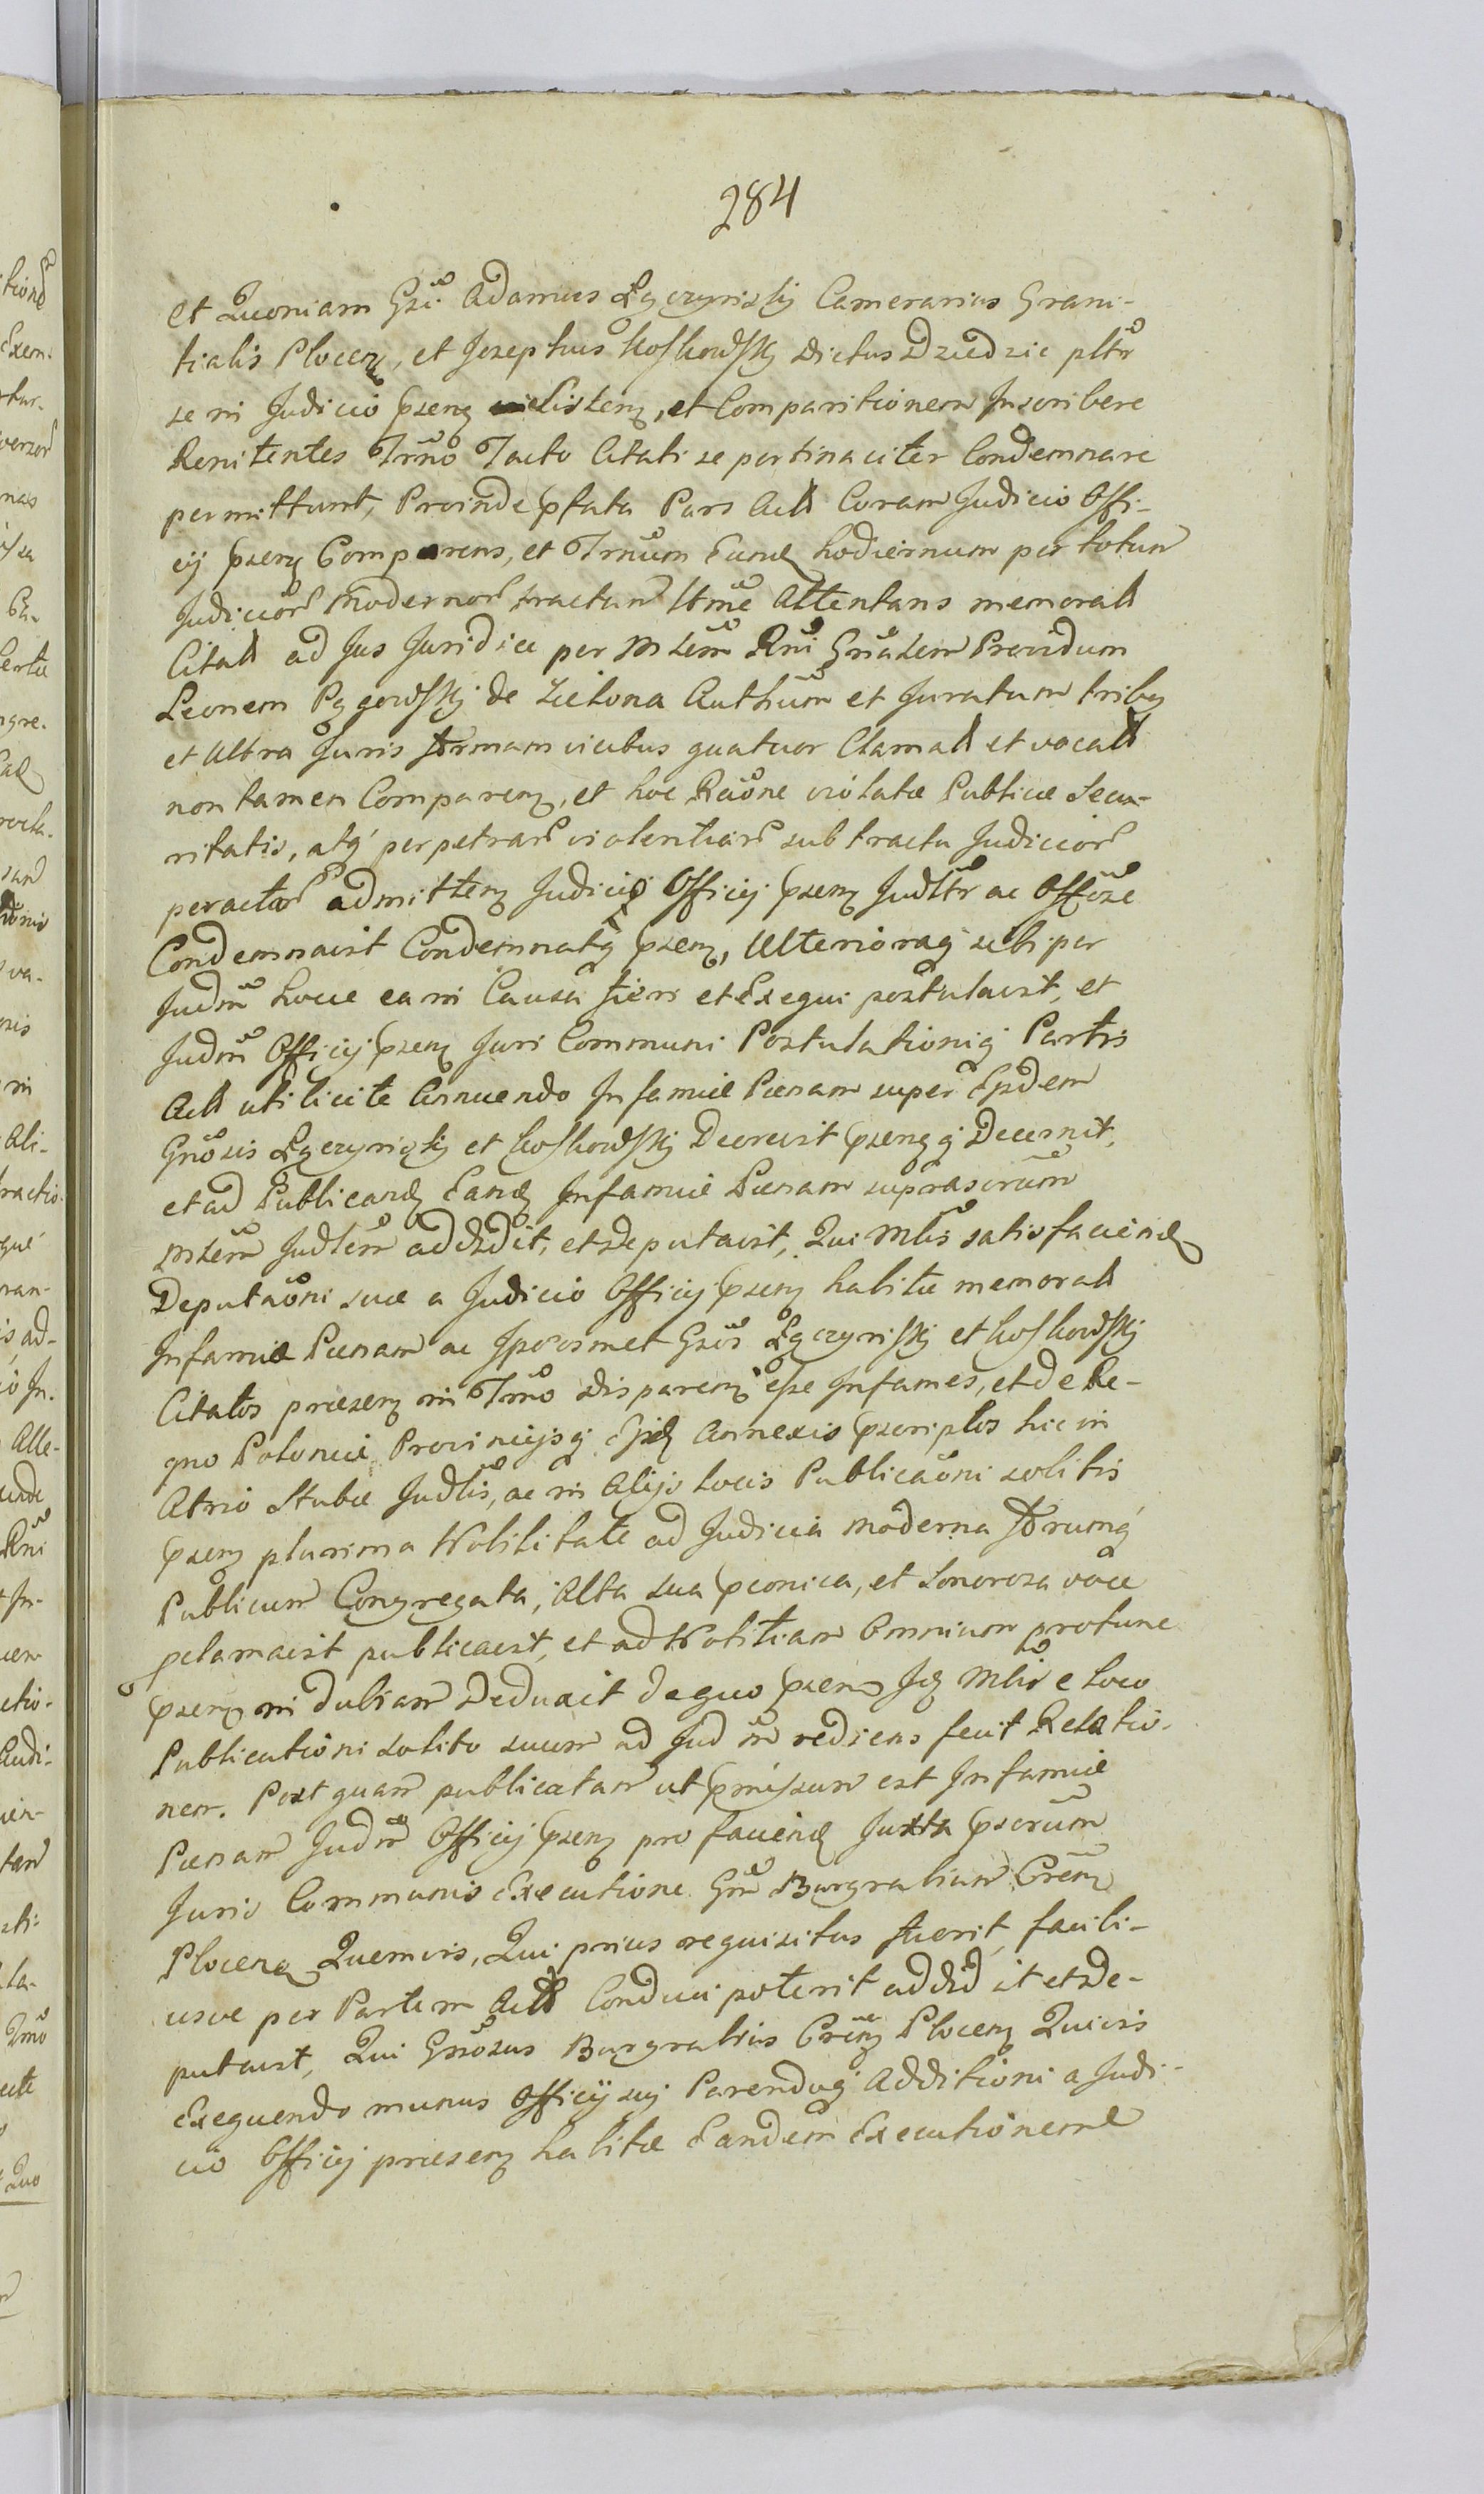 284
et Quoniam Gsi Adamus Łączyński Camerarius Grani-
tialis Plocen, et Josephus Koskowski dictus Dziedzic pltr
se in Judicio psen sisten, et Comparitionem Inscribere
Renitentes Trno Tacto Citati se pertinaciter Condemnare
permittunt, Proinde pfata Pars Act Coram Judicio Offi-
cij psen Comparens, et Trnum Eund hodiernum per totum
Judicior modernor tractum Attentans memorat
Citat ad Jus Juridice per Mlem Rni Gnalem Providum
Leonem Pągowski de Zielona Authum et Juratum tribq
et ultra Juris formam vicibus quatuor Clamat et vocat
non tamen Comparen, et hoc Raone violatæ Publicæ Secu-
ritatis, atq perpetrar violentiar sub tractu Judicior
peractor admitten Judicij Officij psen Judltr ac Offose
Condemnavit Condemnatq psen, Ulterioraq sibi per
Judm hocce ea in Causa fieri et Exequi postulavit, et
Judm Officij psen Juri Communi Postulationiq Partis
Act uti licite Annuendo Infamiæ Pænam super Eisdem
Gnosis Łączyński et Koskowski Decrevit psenqq Decernit,
et ad Publicand Eand Infamiæ Pænam suprascrum
Mlem Judlem addidit, et deputavit, Qui Mlis satisfaciend
Deputaoni suæ a Judicio Officij psen habitæ memorat
Infamiæ Pænam ac Ipsosmet Gsos Łączyński et Koskowski
Citatos præsen in Trno disparen esse Infames, et de Re-
gno Poloniæ Provincijsq Ejsd Annexis pscriptos hic in
Atrio Stubæ Judlis, ac in Alijs locis Publicaoni solitis
psen plurima Nobilitate ad Judicia moderna forumq
Publicum Congregata, Alta sua pconica, et Sonorosa voce
pclamavit publicavit, et ad Notitiam Omnium protunc
psen in dubiam Deduxit de quo psen Id Mlis e loco
Publicationi solito suum ad Judm rediens fecit Relatio-
nem. Post quam publicatam ut pmissum est Infamiæ
Pænam Judm Officij psen pro faciend Juxta pscrum
Juris Communis Executione Gm Burgrabium Cren
Plocen Quemvis, Qui prius requisitus fuerit, facili-
usve per Partem Act Conduci poterit addidit et de-
putavit, Qui Gnosus Burgrabius Cren Plocen Quivis
Exequendo munus Officij sui Parendoq Additioni a Judi-
cio Officij præsen habitæ Eandem Executionem